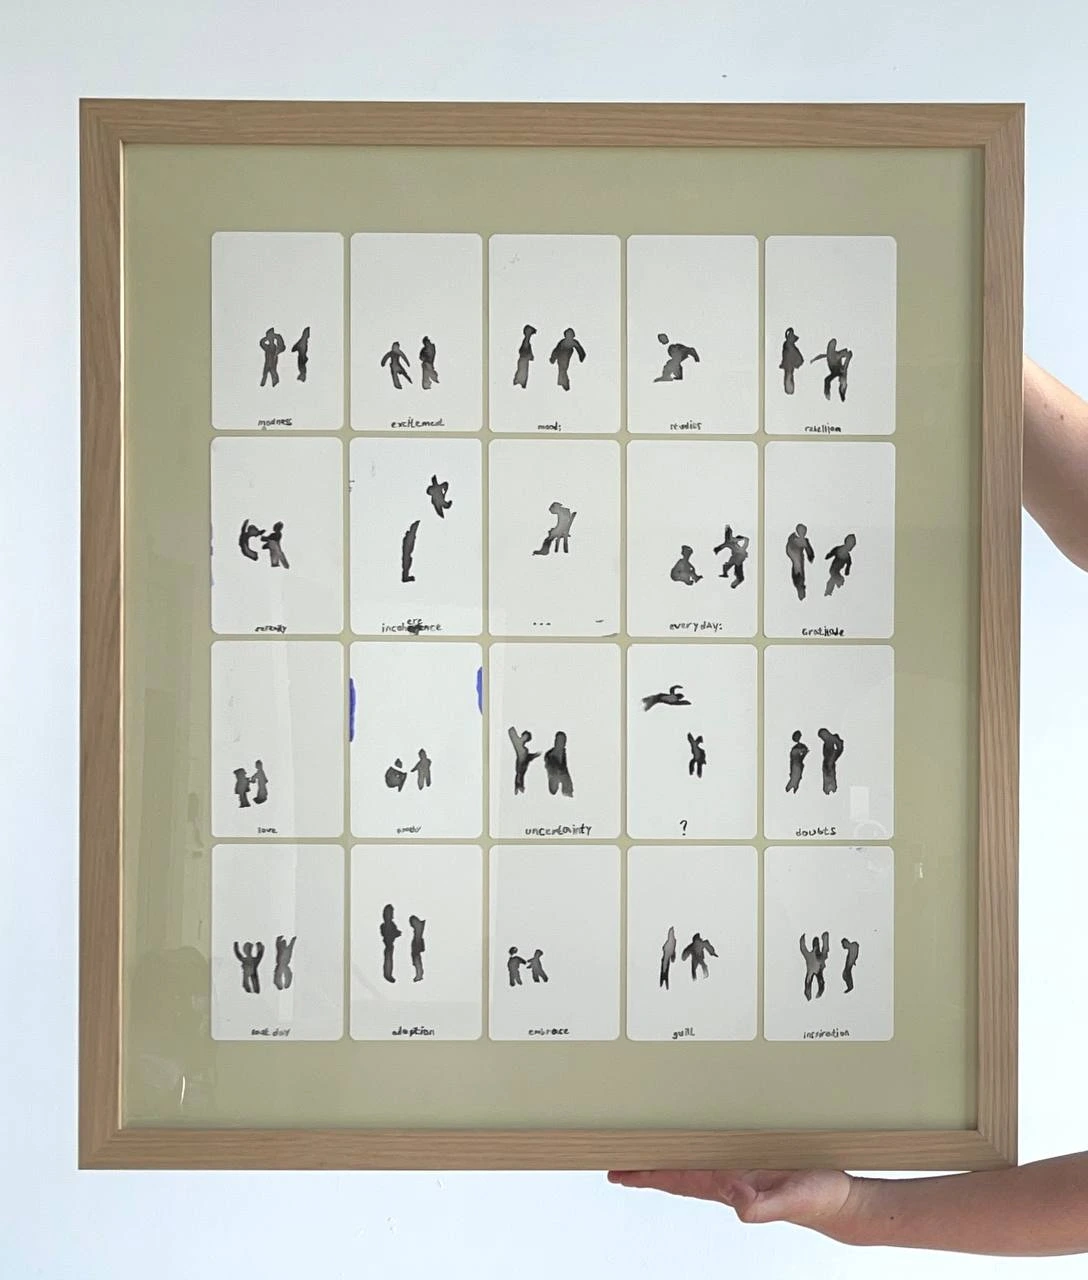 madness
excitement
mood;
rebellion
serenity
incoherence
ere
...
everyday:
Gratitude
love
uncertainty
?
doubts
adoption
embrace
guilt
inspiration